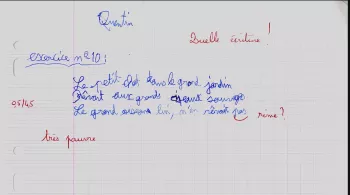 Quentin
Quelle écriture !
exercice n°10 :
Le petit chat dans le grand jardin
Rêvait aux grands oiseaux sauvages
Le grand oiseau lui, n'en rêvait pas rime ?
très pauvre